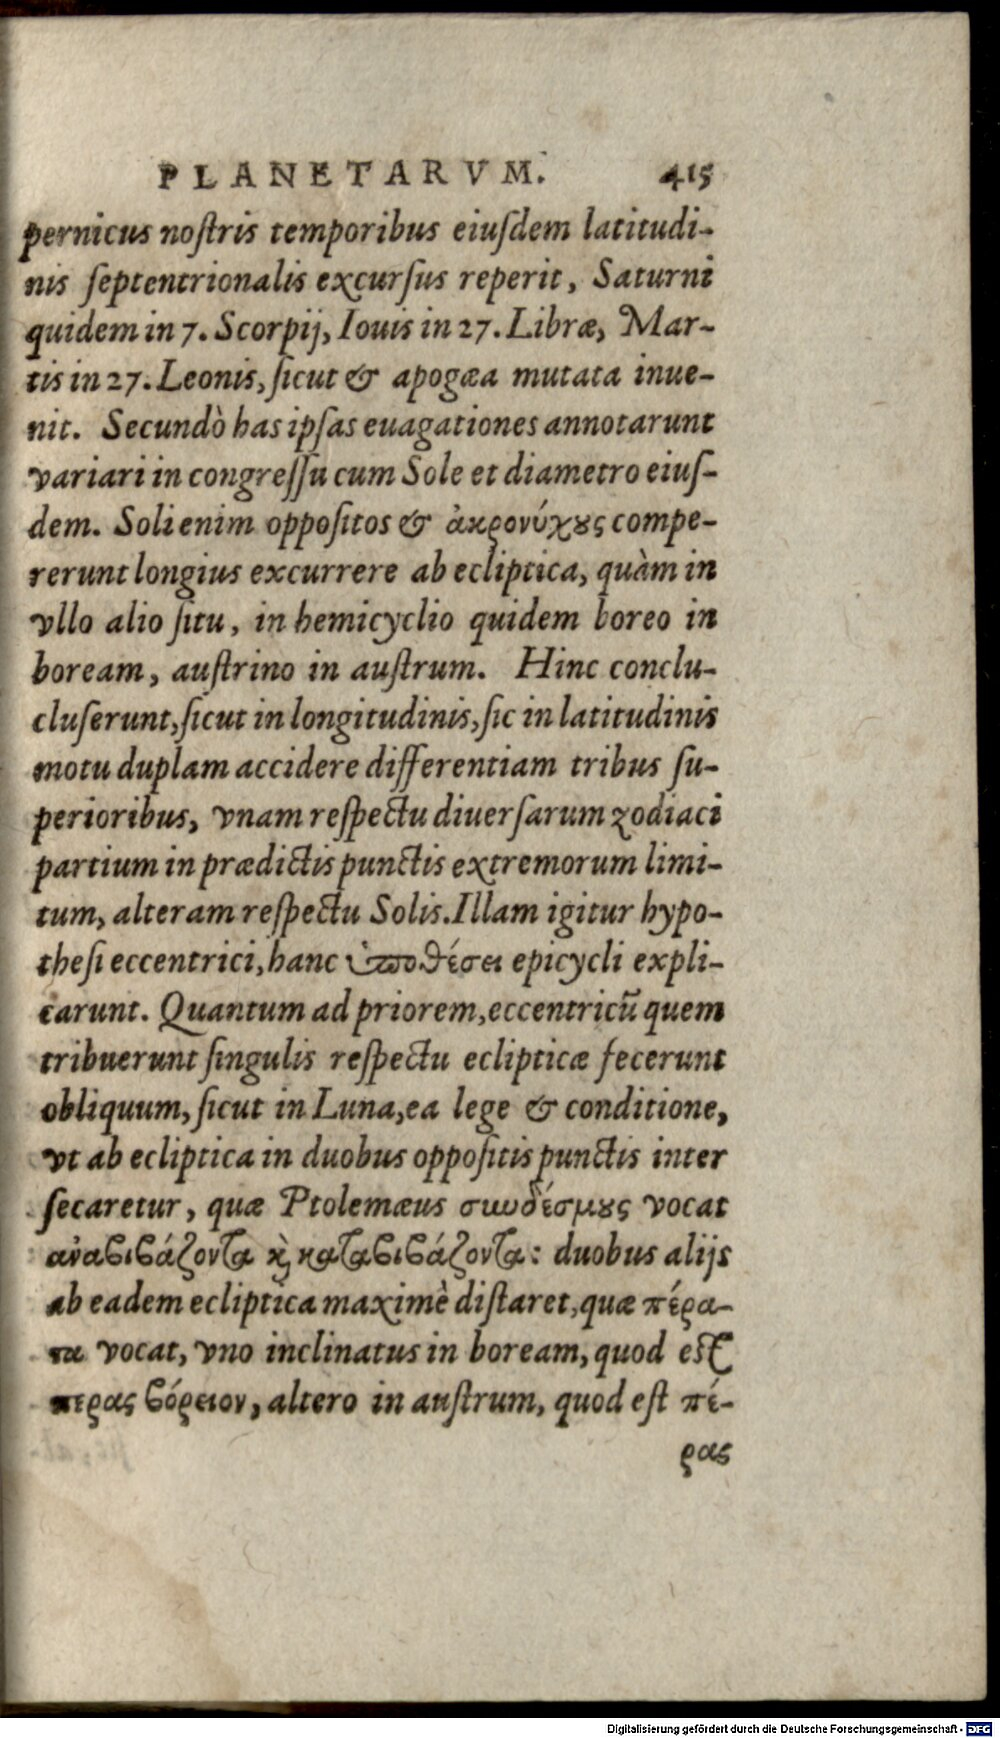 PLANETARVM. 415
pernicus noſtris temporibus eiuſdem latitudi-
nis ſeptentrionalis excurſus reperit, Saturni
quidem in 7. Scorpij, Iouis in 27. Libræ, Mar-
tis in 27. Leonis, ſicut & apogæa mutata inue-
nit. Secundò has ipſas euagationes annotarunt
variari in congreſſu cum Sole et diametro eiuſ-
dem. Soli enim oppoſitos & ἀκρονύχȣς compe-
rerunt longius excurrere ab ecliptica, quàm in
vllo alio ſitu, in hemicyclio quidem boreo in
boream, auſtrino in auſtrum. Hinc conclu-
cluſerunt, ſicut in longitudinis, ſic in latitudinis
motu duplam accidere differentiam tribus ſu-
perioribus, vnam reſpectu diuerſarum zodiaci
partium in prædictis punctis extremorum limi-
tum, alteram reſpectu Solis. Illam igitur hypo-
theſi eccentrici, hanc ὑποθέσει epicycli expli-
carunt. Quantum ad priorem, eccentricū quem
tribuerunt ſingulis reſpectu eclipticæ fecerunt
obliquum, ſicut in Luna, ea lege & conditione,
vt ab ecliptica in duobus oppoſitis punctis inter
ſecaretur, quæ Ptolemæus συνδέσμȣς vocat
ἀναϐιϐάζοντα ϗ καταϐιϐάζοντα: duobus alijs
ab eadem ecliptica maximè diſtaret, quæ πέρα-
τα vocat, vno inclinatus in boream, quod eſt
περας ϐόρειον, altero in auſtrum, quod eſt πέ-
ρας
Digitalisierung gefördert durch die Deutsche Forschungsgemeinschaft - DFG